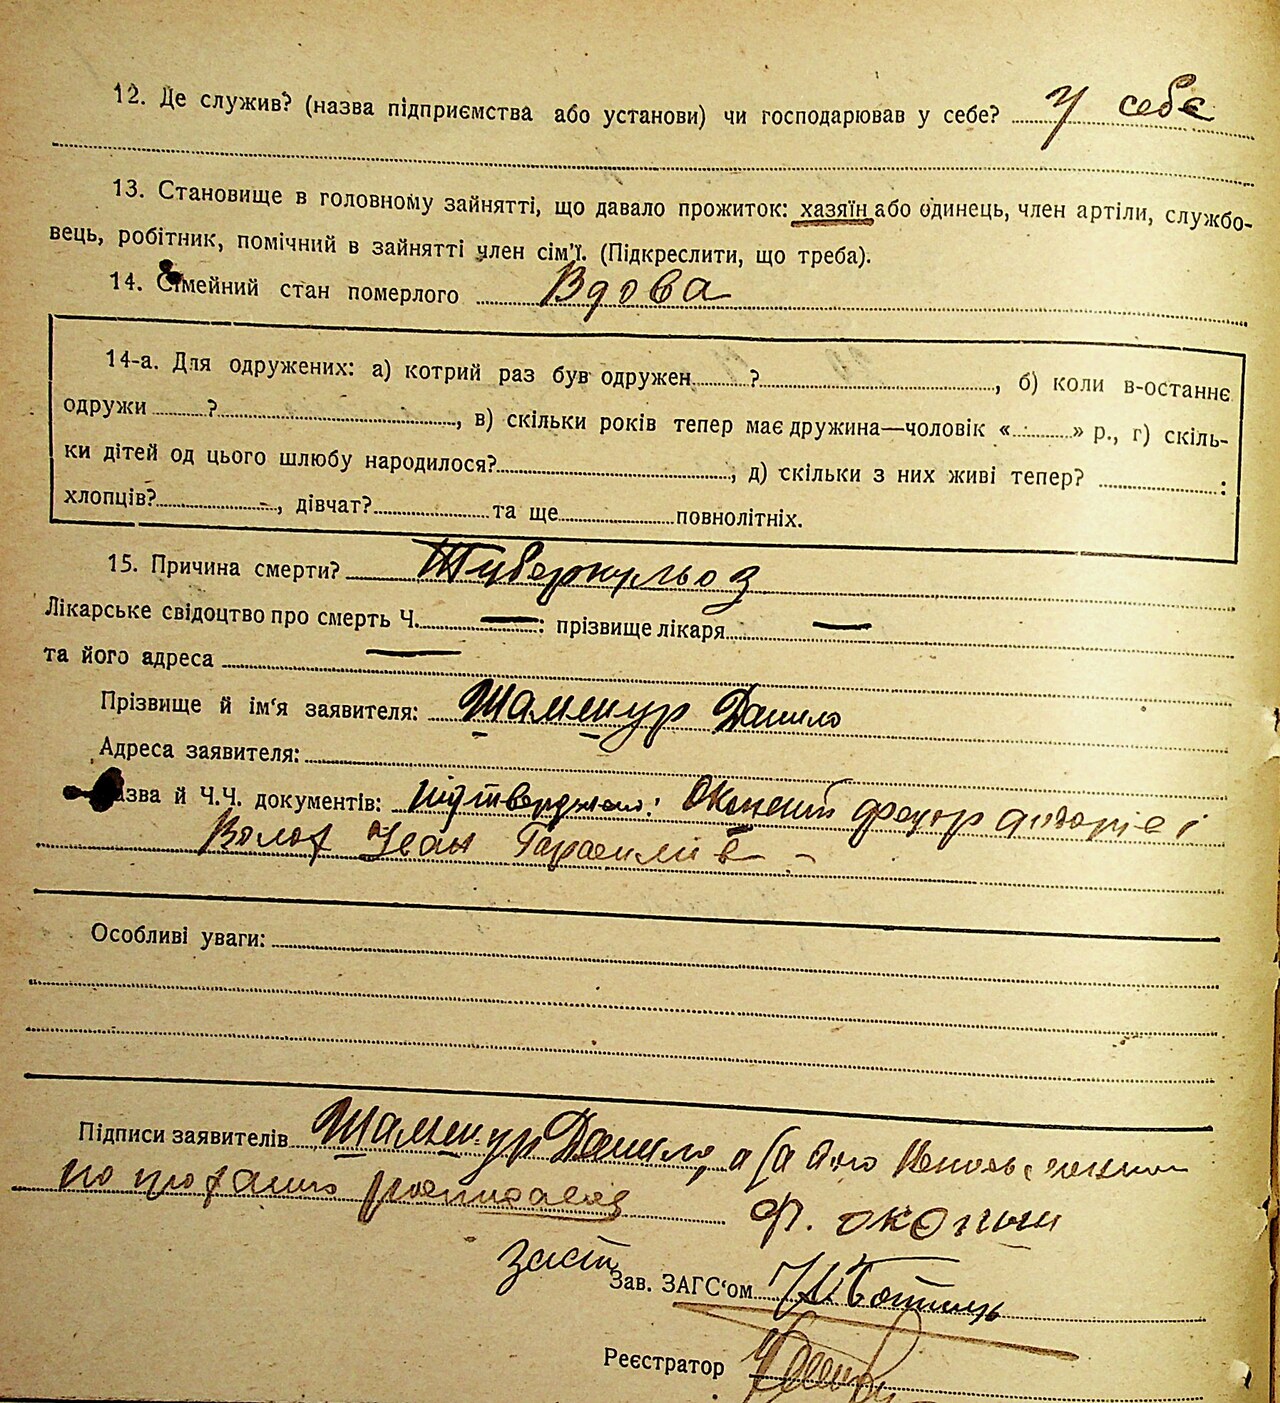 12. Де служив? (назва підприємства або установи) чи господарював у себе? У себе
13. Становище в головному зайнятті, що давало прожиток: хазяїн або одинець, член артіли, службо-
вець, робітник, помічний в зайнятті член сім'ї. (Підкреслити, що треба).
14. Сімейний стан померлого Вдова
14-а. Для одружених: а) котрий раз був одружен ?, б) коли в-останнє
одружи ?, в) скільки років тепер має дружина—чоловік « » р., г) скіль-
ки дітей од цього шлюбу народилося?, д) скільки з них живі тепер? :
хлопців? -, дівчат? та ще повнолітніх.
15. Причина смерти? Туберкульоз
Лікарське свідоцтво про смерть Ч. — : прізвище лікаря —
та його адреса —
Прізвище й ім'я заявителя: Шамшур Данило
Адреса заявителя:
азва й Ч.Ч. документів: підтверджено: Окопний Федор
Волох Іван Гарасимів -
Особливі уваги:
Підписи заявителів Шамшур Данило, а за його
по прозбі росписався Ф. Окопний
заст
Зав. ЗАГС'ом
Реєстратор